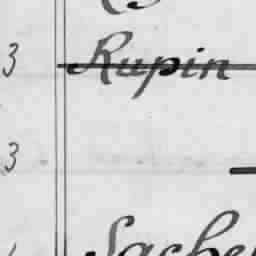 3 Rupin
3
Sache